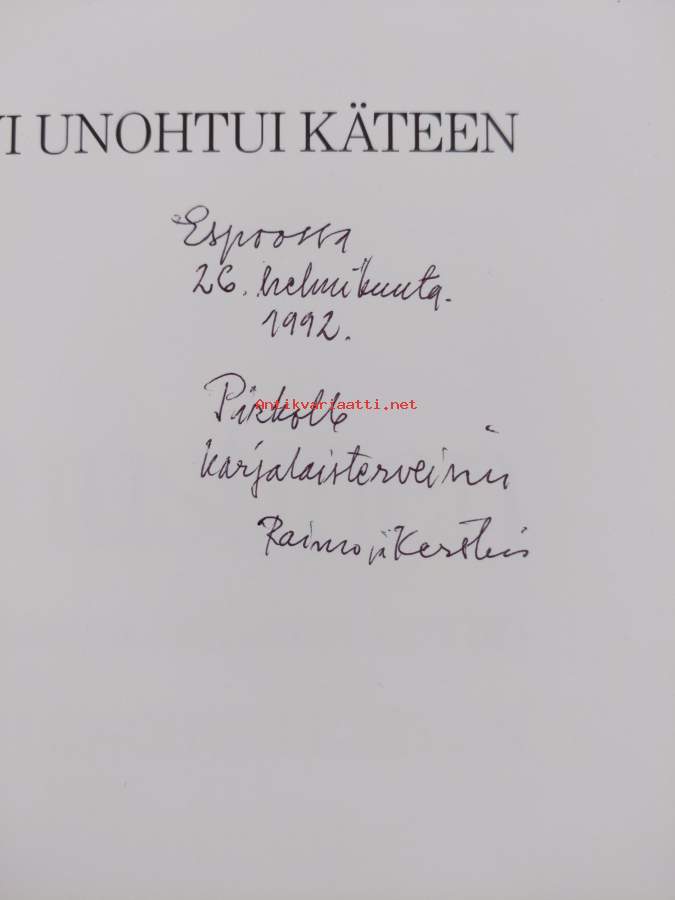 VI UNOHTUI KÄTEEN
Espoossa
26. helmikuuta.
1992.
Pirkolle
Antikvariaatti.net
karjalaisterveisin
Raimo ja